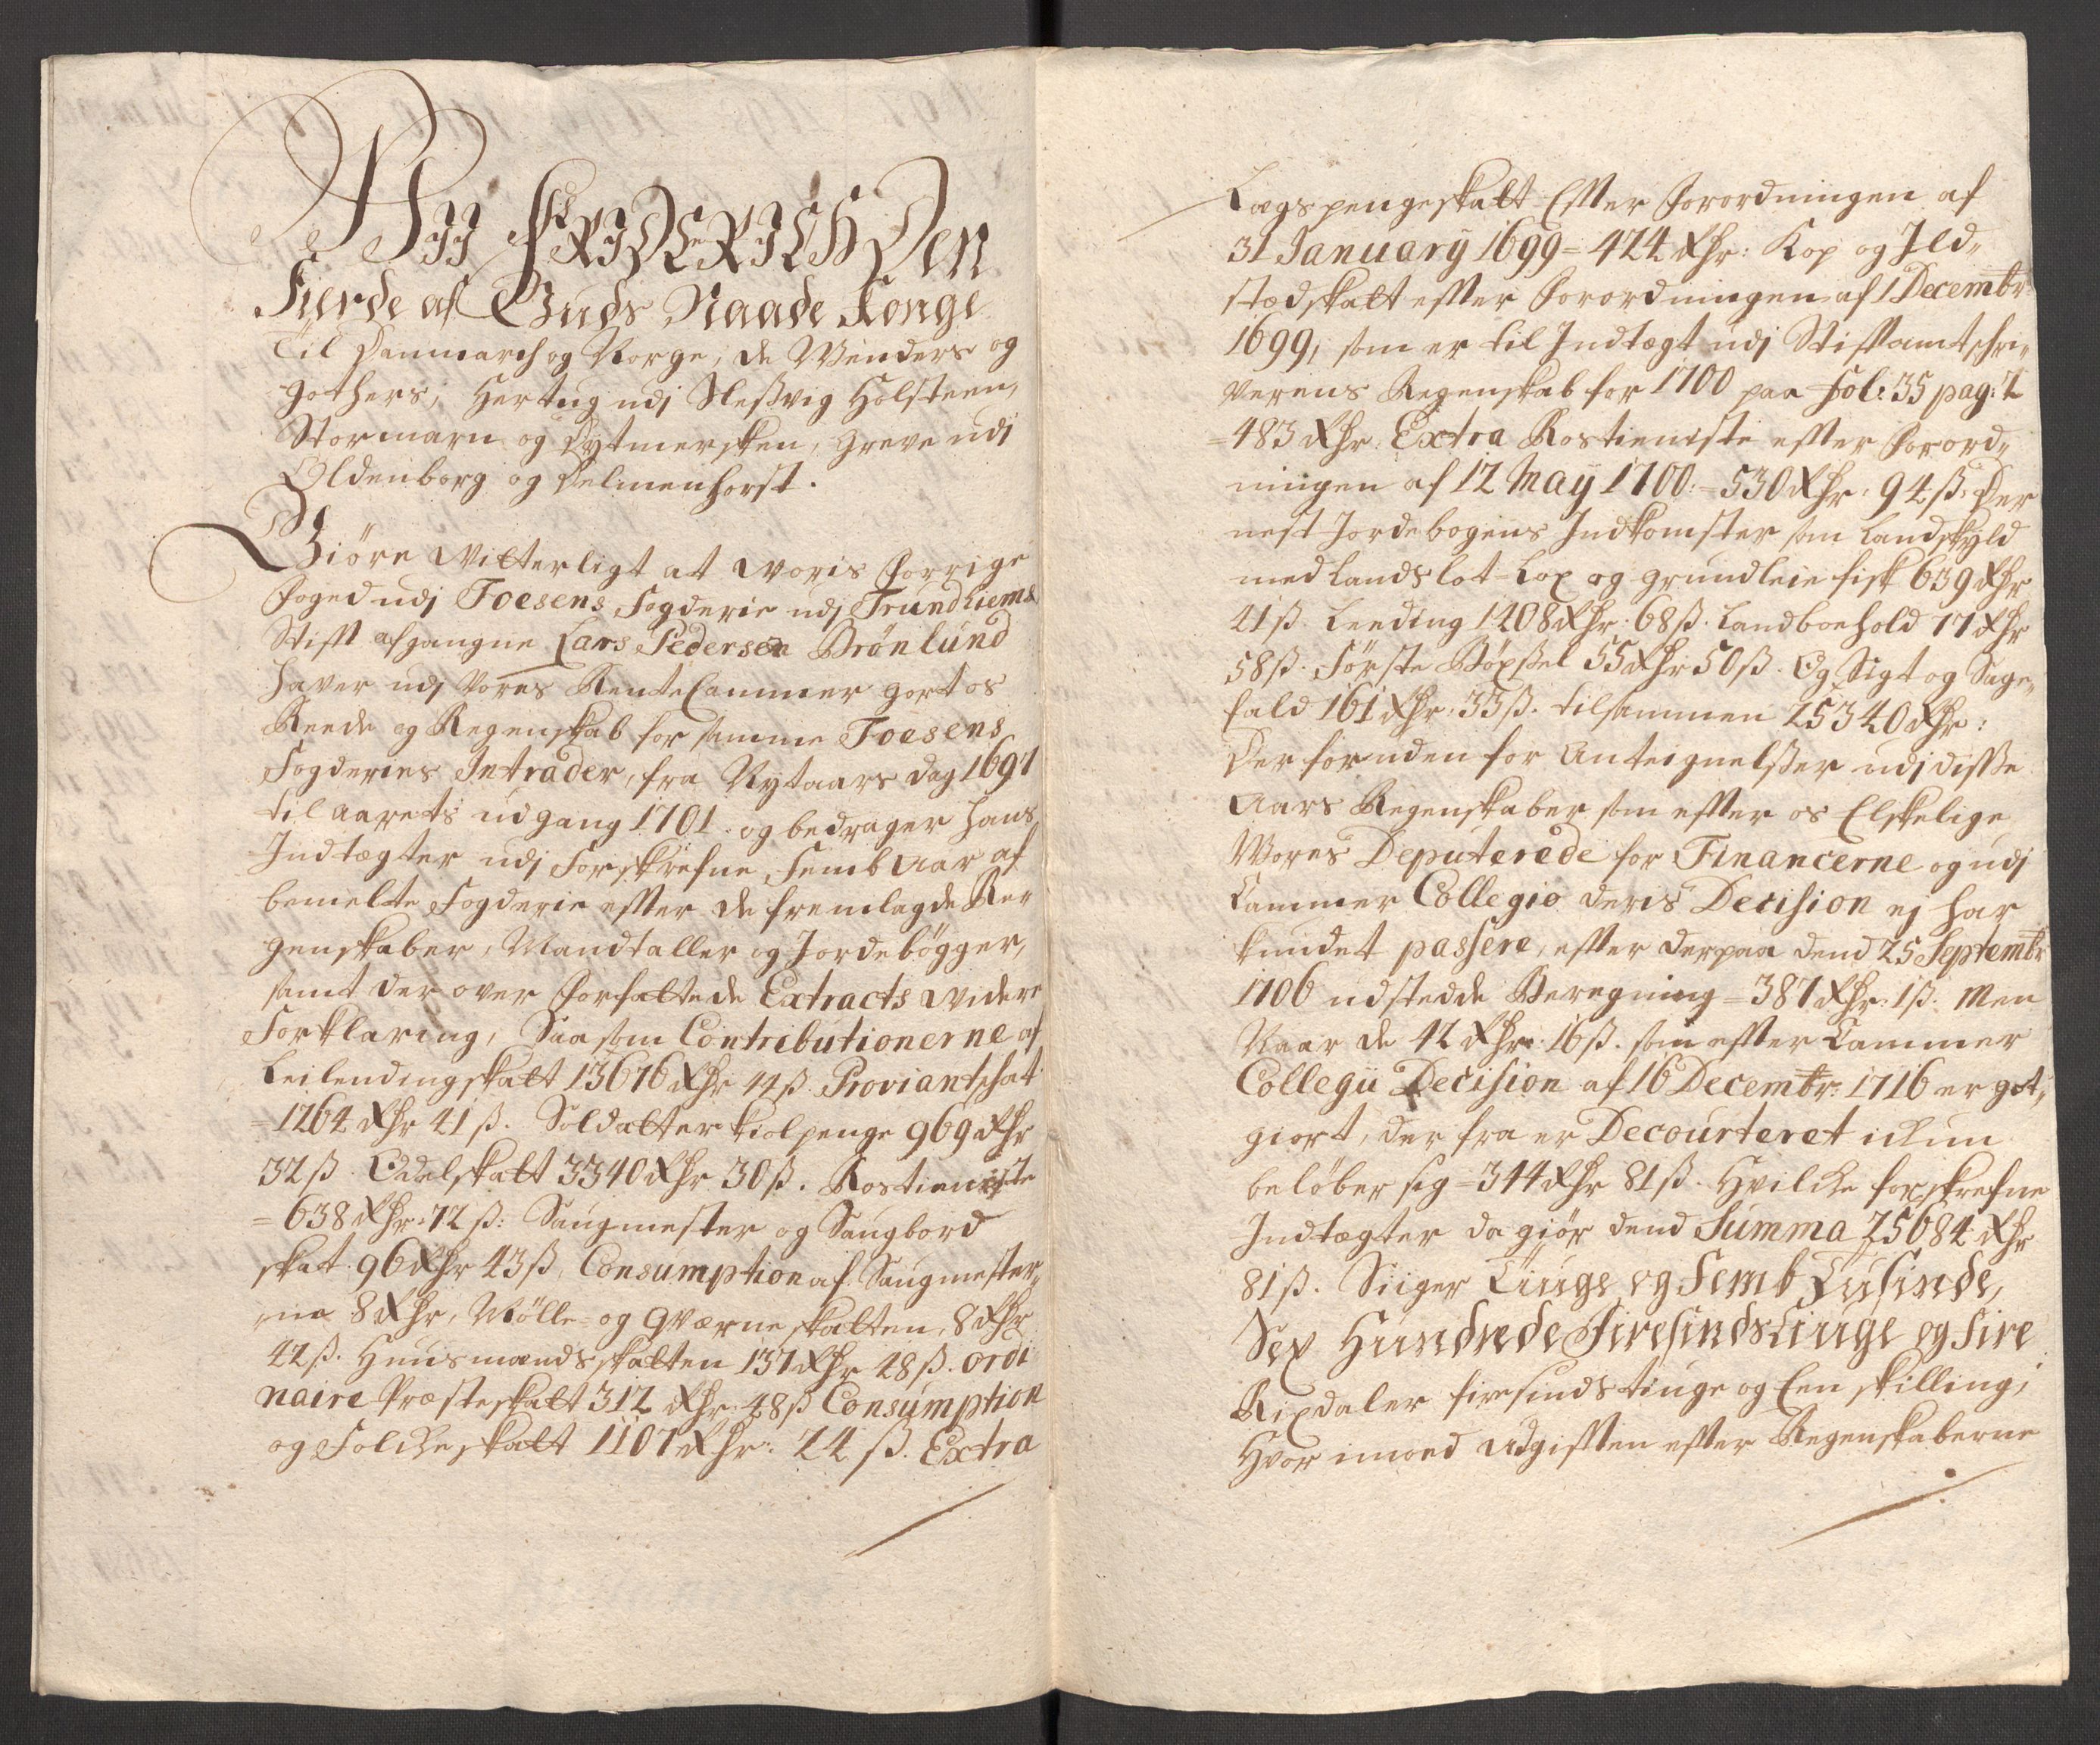 Wii FRIDERICH Den
Fierde af Guds Naade Konge
Til Danmarch og Norge, de Wenders og
Gothers, Hertug udj Slesvig Holsteen,
Stormarn og Dytmersken, Greve udj
Oldenborg og Delmenhorst.
Giöre Witterligt at Woris forrige
foged udj Foesens Fogderie udj Trundhiems
Stift afgangne Lars Pedersen Brönlund
haver udj Vores RenteCammer giort os
Reede og Regenskab for samme Foesens
Fogderies Intrader, fra Nytaars dag 1697
til aarets udgang 1701. og bedrager hans
Indtægter udj Forskrefne Femb Aar af
bemelte Fogderie efter de fremlagde Re„
genskaber, Mandtaller og Jordebögger,
samt der over forfattede Extracts widere
Forklaring, Saa som Contributionerne af
Leilendingskatt 13676 Rdr 44ß. Proviantschat
=1264 Rdr 41ß. Soldatter kiolpenge 969 Rdr
32ß. Odelskatt 3340 Rdr 30ß. Rostieniste
=638 Rdr: 72ß: Saugmester og Saugbord
skat 96 Rdr 43ß, Consumption af Saugmester„
ne 8 Rdr, Mölle- og Qværneskatten, 8 Rdr
42ß. Huusmandsskatten 137 Rdr 28ß. ordi
naire Præsteskatt 312 Rdr: 48ß Consumption
og Folcheskatt 1107 Rdr: 24ß. Extra
Laugspengeskatt Efter Forordningen af
31 January 1699 = 424 Rdr: Kop og Ild„
stedskatt efter Forordningen af 1 Decembr
1699, som er til Indtægt udj Stiftamtschri„
verens Regenskab for 1700 paa Fol: 35 pag: 2
=483 Rdr. Extra Rostieniste efter Forord„
ningen af 12 May 1700: = 530 Rdr: 94ß: Der
nest Jordebogens Indkomster som Landskyld
med Landslot-Lox og grundleie fisk 639 Rdr
41ß. Leeding 1408 Rdr: 68ß. Landboehold 77 Rdr
58ß. Förste Böxsel 55 Rdr 50ß. Og Sigt og Sage„
fald 161 Rdr: 33ß. tilsammen 25340 Rdr:
Der foruden for Anteignelsser udj disse
Aars Regenskaber som efter os Elskelige
Wores Deputerede for Financerne og udj
Cammer Collegio deris Decision ej har
kundet passere, efter derpaa dend 25 Septembr
1706 udstedde Beregning = 387 Rdr: 1ß. Men
Naar de 42 Rdr: 16ß. som efter Cammer
Collegii Decision af 16 Decembr: 1716 er got„
giort, der fra er Decourteret ichun
belöber sig = 344 Rdr 81ß. Hvilche forskrefne
Indtægter da giör dend Summa 25684 Rdr
81ß. Siiger Tiuge og Femb Tusinde,
Sex Hundrede Firesindstiuge og Fire
Rixdaler firesindstiuge og Een skilling,
Hvor imoed Udgiften efter Regenskaberne